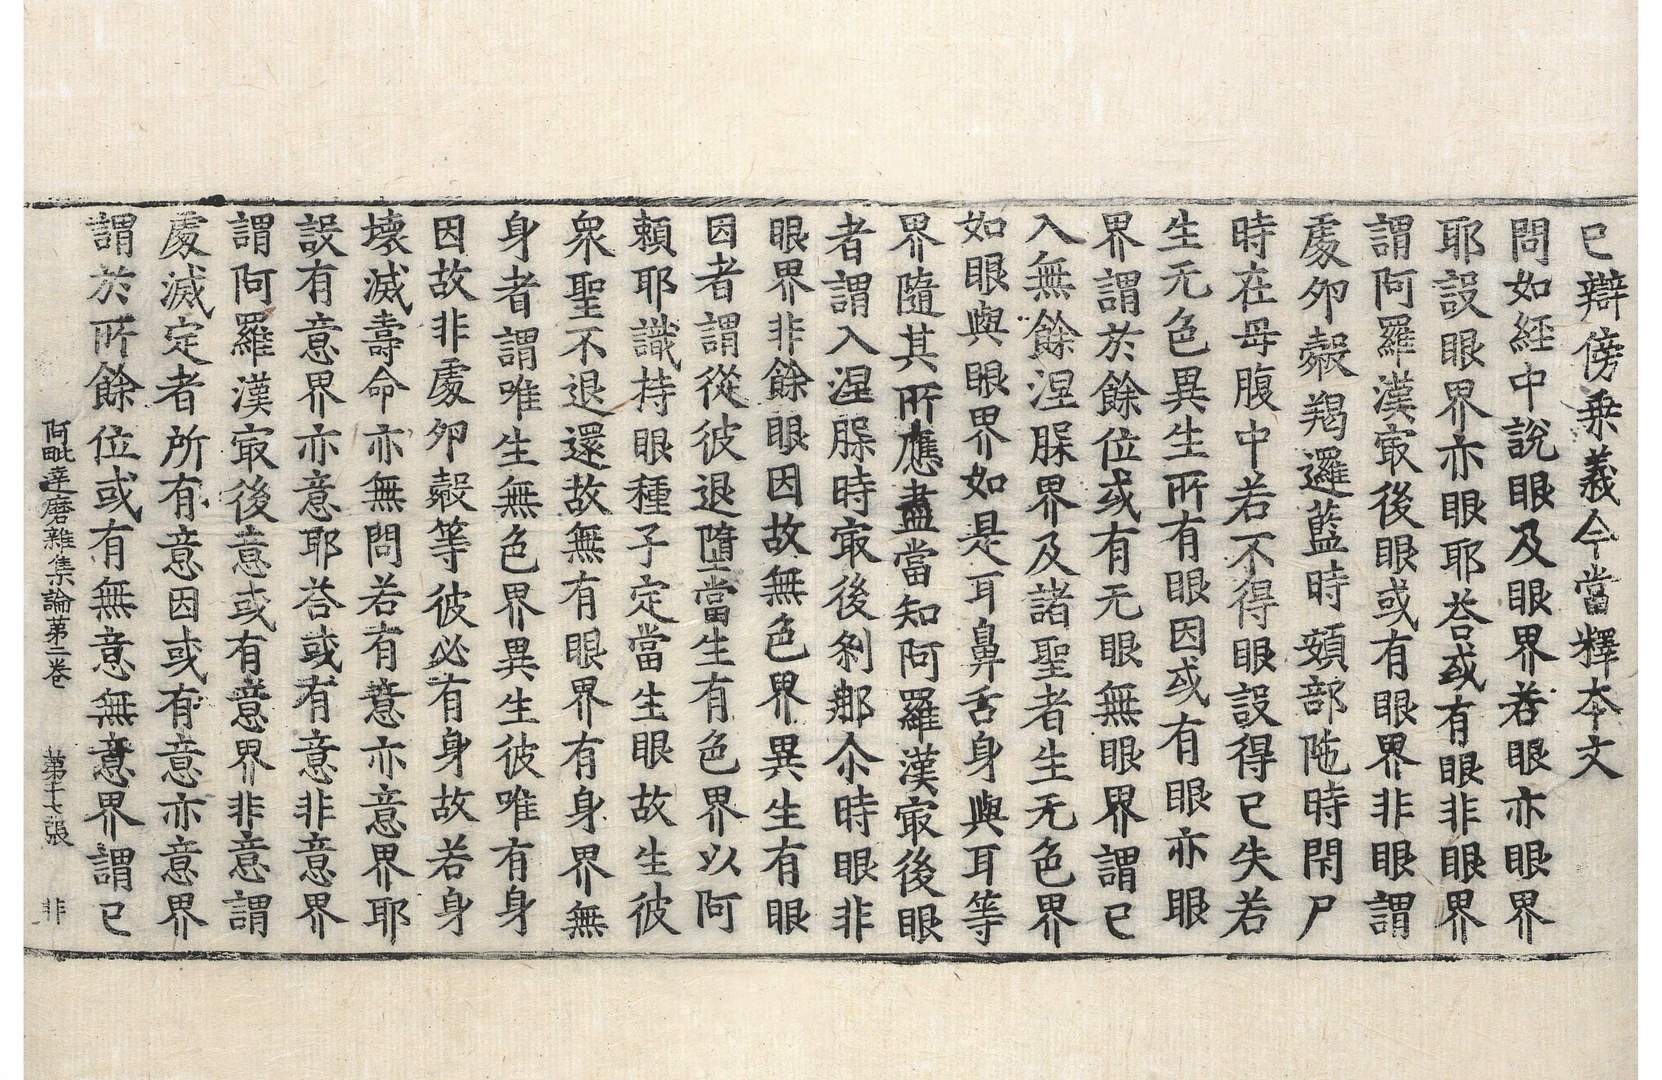 已辯傍乗義今當釋本文
問如經中說眼及眼界若眼亦眼界
耶設眼界亦眼耶荅或有眼非眼界
謂阿羅漢㝡後眼或有眼界非眼謂
處卵㲉羯邏藍時頞部陁時閇尸
時在母腹中若不得眼設得已失若
生无色異生所有眼因或有眼亦眼
界謂於餘位或有无眼無眼界謂已
入無餘涅槃界及諸聖者生无色界
如眼與眼界如是耳鼻舌身與耳等
界隨其所應盡當知阿羅漢㝡後眼
者謂入涅槃時㝡後刹那尒時眼非
眼界非餘眼因故無色界異生有眼
因者謂從彼退墮當生有色界以阿
頼耶識持眼種子定當生眼故生彼
衆聖不退還故無有眼界有身界無
身者謂唯生無色界異生彼唯有身
因故非處卵㲉等彼必有身故若身
壞滅壽命亦無問若有意亦意界耶
設有意界亦意耶荅或有意非意界
謂阿羅漢㝡後意或有意界非意謂
處滅定者所有意因或有意亦意界
謂於所餘位或有無意無意界謂已
阿毗達磨雜集論第二卷 第十七張 非